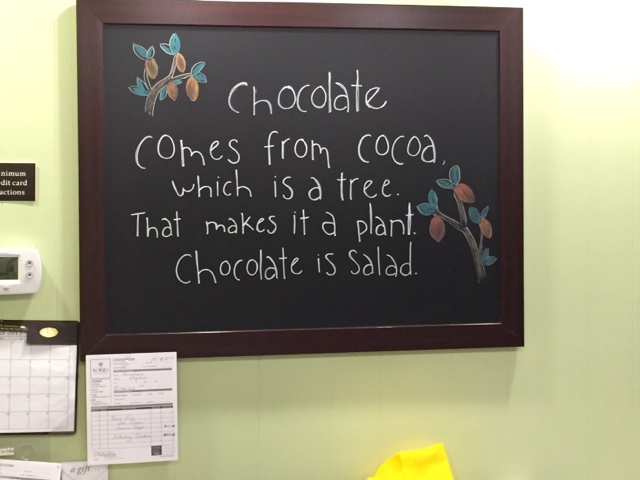 Chocolate
comes from cocoa,
which is a tree.
That makes it a plant.
Chocolate is Salad.
nimum
dit card
actions
a gift...